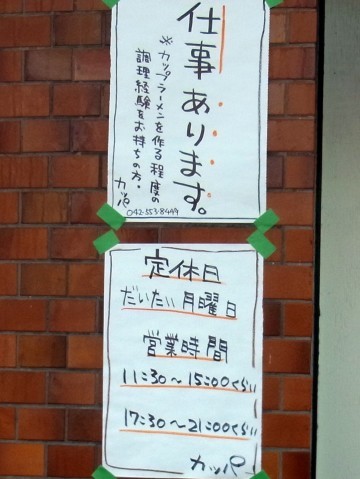 仕事あります。
※カップラーメンを作る程度の
調理経験をお持ちの方。
カッパ
042-553-8449
定休日
だいたい月曜日
営業時間
11:30～15:00くらい
17:30～21:00くらい
カッパ